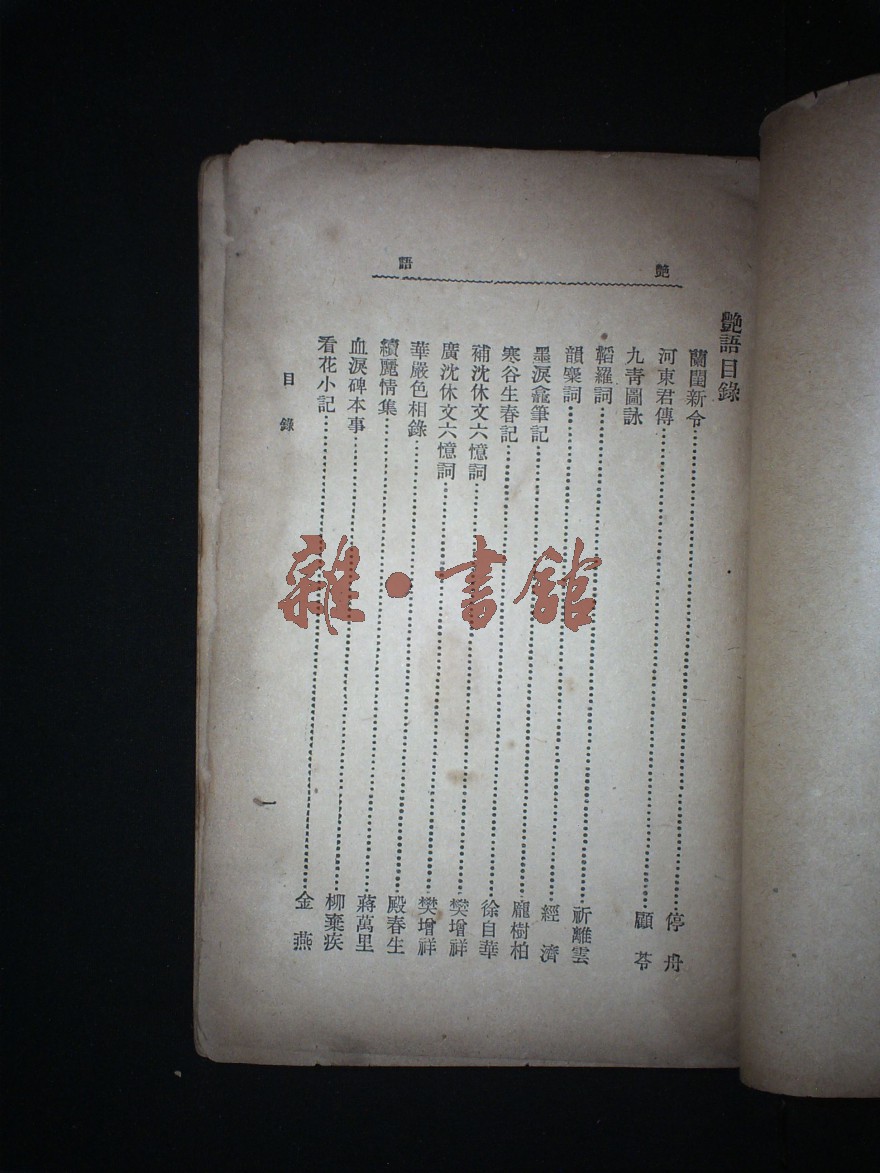 艷語
艷語目錄
蘭閨新令……停舟
河東君傳……顧苓
九靑圖詠
羅詞……祈離雲
韻寮詞……經濟
墨淚龕筆記……龐樹柏
寒谷生春記……徐自華
補沈休文六憶詞……樊增祥
廣沈休文六憶詞……樊增祥
華嚴色相錄……殿春生
續麗情集……蔣萬里
血淚碑本事……柳棄疾
看花小記……金燕
目錄
一
雜·書館